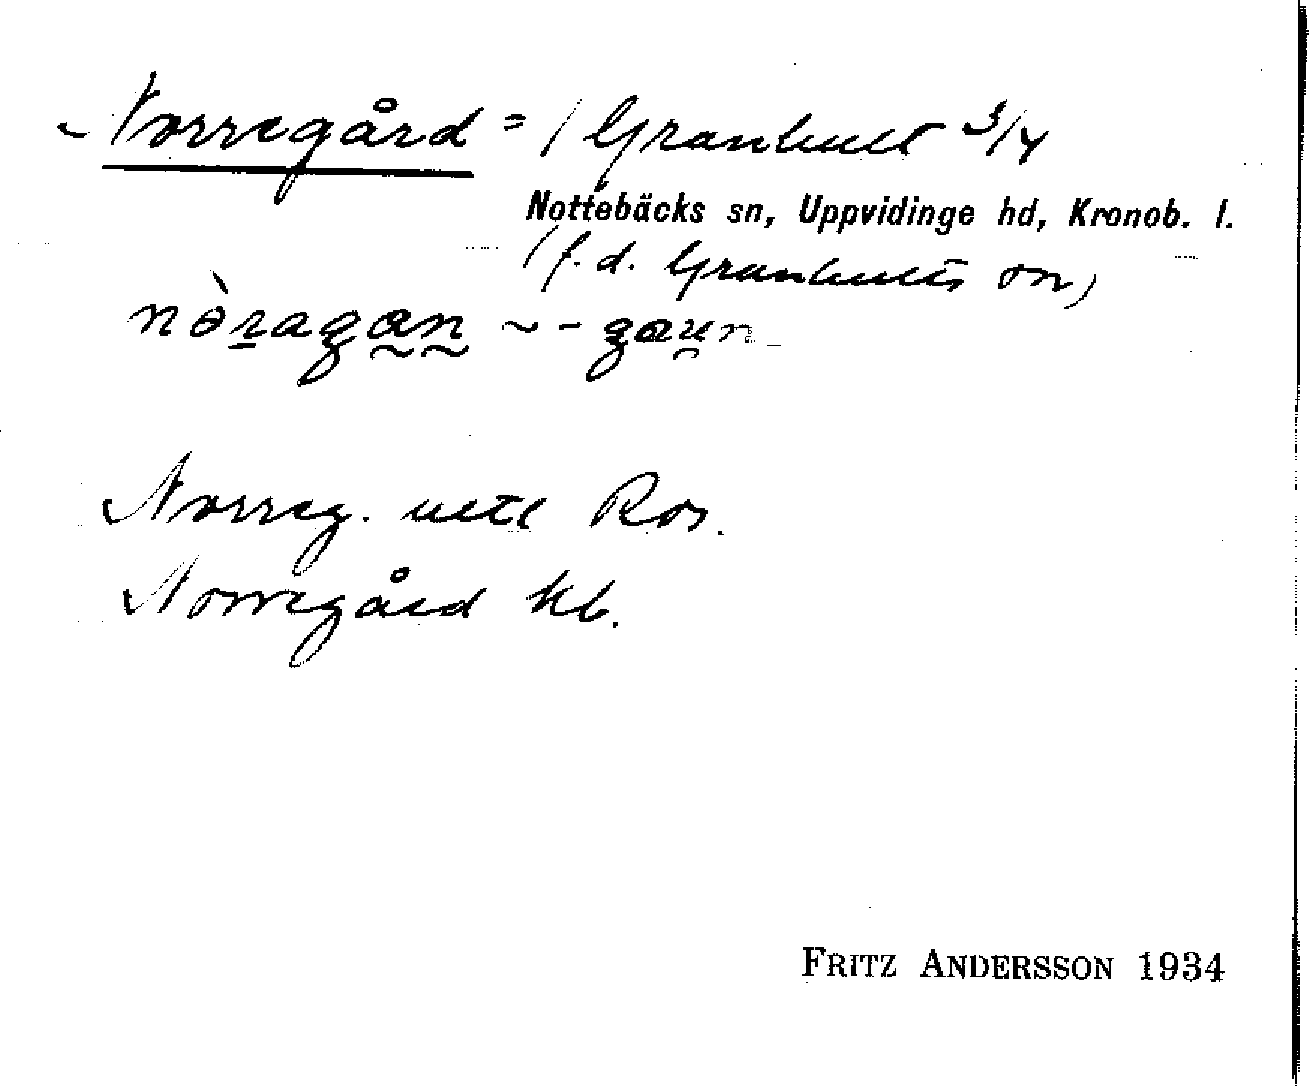 Norregård = / Granhult 3/4
Nottebäcks sn, Uppvidinge hd, Kronob. l.
(f.d. Granhults sn)
nòragan ~ - gaun
Norreg. utl Ros.
Norregård kb.
FRITZ ANDERSSON 1934